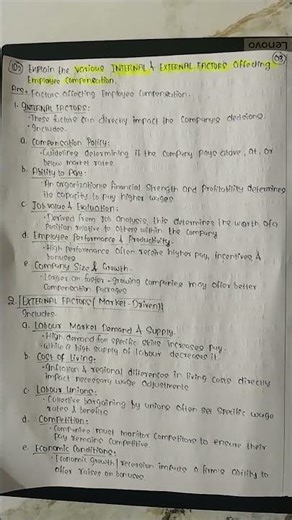 Lenovo
Q5) Explain the various INTERNAL & EXTERNAL FACTORS affecting
Employee Compensation.
Ans- Factors affecting Employee Compensation:
1. INTERNAL FACTORS:
• These factors can directly impact the company's decisions.
• Includes
a. Compensation Policy:
• Guideline determining if the company pays above, at, or
below market rates
b. Ability to Pay:
• An organizations financial strength and profitability determines
its capacity to pay higher wages
c. Job value & Evaluation:
• Derived from Job analysis, this determines the worth of a
position relative to others within the company
d. Employee Performance & Productivity:
• High performance often receive higher pay, incentives &
bonuses
e. Company Size & Growth:
• Larger or faster-growing companies may offer better
compensation packages
2. EXTERNAL FACTORS (Market-Driven)
Includes:
a. Labour Market Demand & Supply.
• High demand for specific skills increases pay,
• while a high supply of labour decreases it.
b. Cost of Living:
• Inflation & regional differences in living costs directly
impact necessary wage adjustments
c. Labour Unions:
• Collective bargaining by unions often set specific wage
rates & benefits
d. Competition:
• Companies must monitor competitors to ensure their
pay remains competitive
e. Economic Conditions:
• Economic growth / recession impacts a firm's ability to
offer raises or bonuses